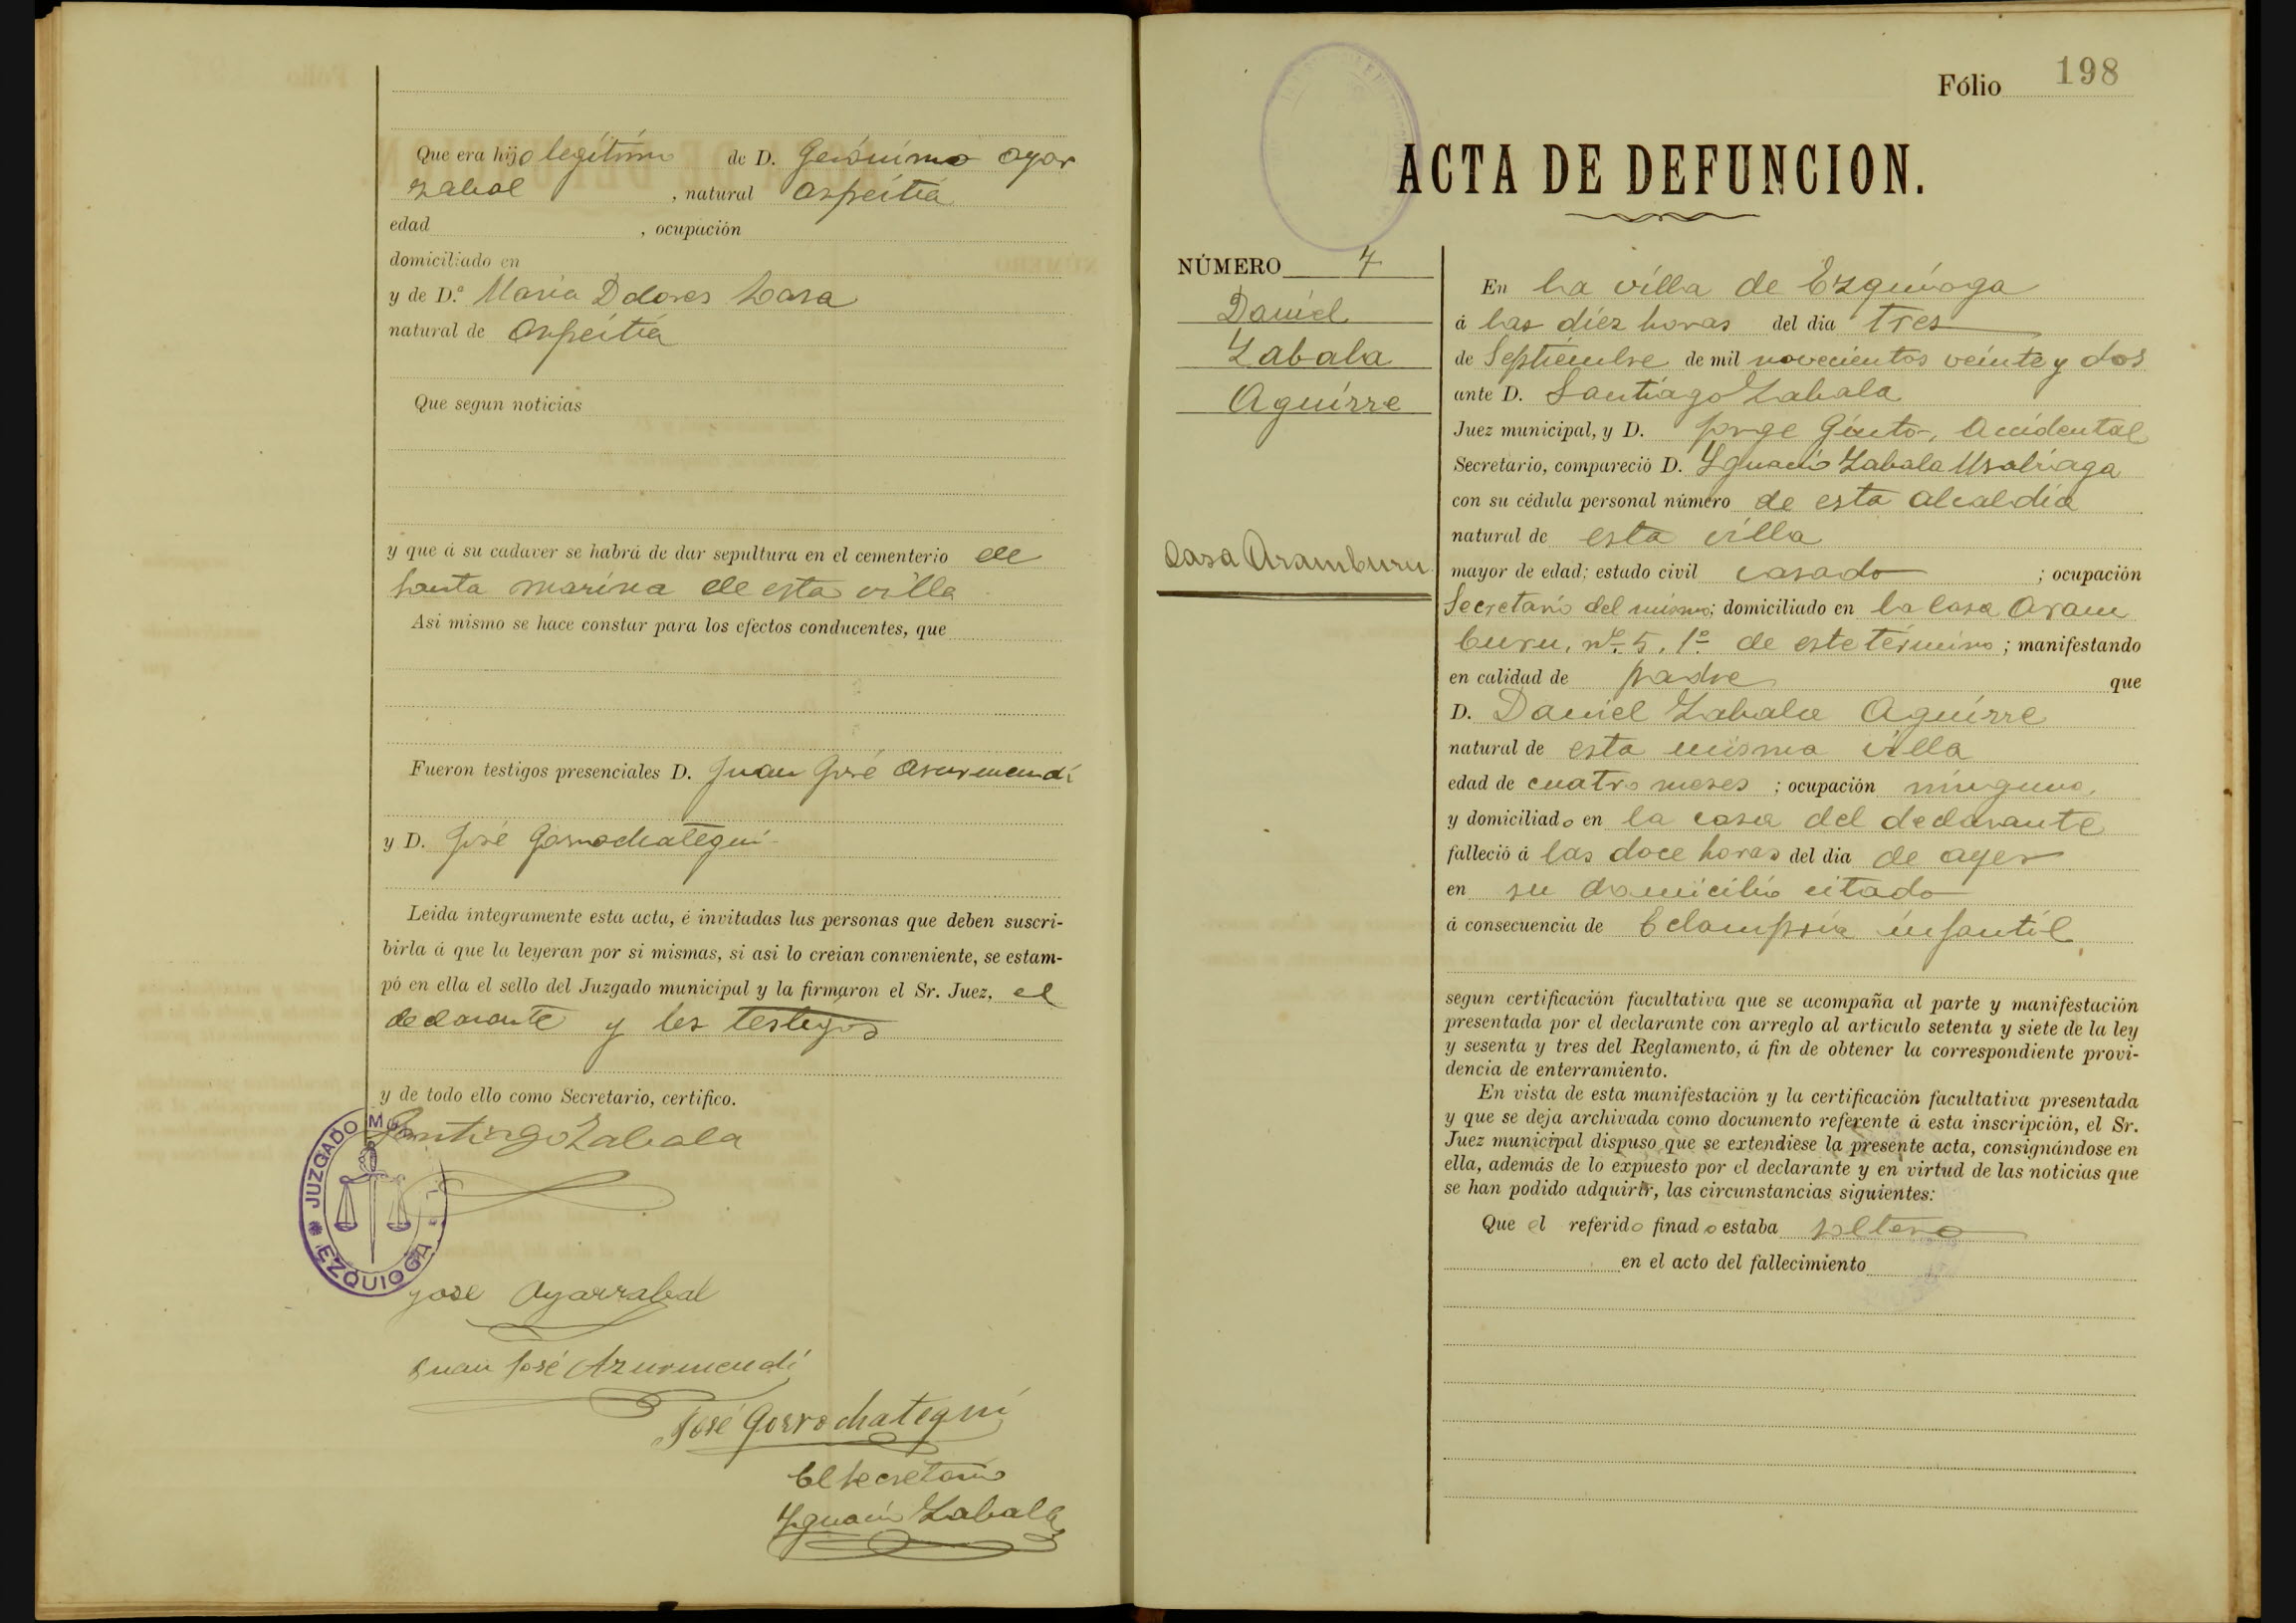 Que era hijo legítimo de D. Gerónimo Oyar
zabal , natural Aspeitia
edad , ocupación
domiciliado en
y de D.ª Maria Dolores Lasa
natural de Aspeitia
Que segun noticias
y que á su cadaver se habrá de dar sepultura en el cementerio de
Santa Marina de esta villa
Asi mismo se hace constar para los efectos conducentes, que
Fueron testigos presenciales D. Juan José Azurmendi
y D. José Gorrochategui
Leida íntegramente esta acta, é invitadas las personas que deben suscri-
birla á que la leyeran por si mismas, si asi lo creian conveniente, se estam-
pó en ella el sello del Juzgado municipal y la firmaron el Sr. Juez, el
declarante y los testigos
y de todo ello como Secretario, certifico.
Santiago Zabala
JUZGADO EZQUIOGA
Jose Oyarzabal
Juan José Azurmendi
José Gorrochategui
El Secretario
Ygnacio Zabala
Fólio 198
ACTA DE DEFUNCION.
NÚMERO 7
Daniel
Zabala
Aguirre
Casa Aramburu
En la villa de Ezquioga
á las diez horas del dia tres
de Septiembre de mil novecientos veinte y dos
ante D. Santiago Zabala
Juez municipal, y D. Jorge Accidental
Secretario, compareció D. Ygnacio Zabala Usabiaga
con su cédula personal número de esta alcaldia
natural de esta villa
mayor de edad; estado civil casado ; ocupación
Secretario del mismo; domiciliado en la casa Aram
buru, nº 5, 1º de este término ; manifestando
en calidad de padre que
D. Daniel Zabala Aguirre
natural de esta misma villa
edad de cuatro meses ; ocupación ninguna,
y domiciliado en la casa del declarante
falleció á las doce horas del dia de ayer
en su domicilio citado
á consecuencia de Eclampsia infantil
segun certificación facultativa que se acompaña al parte y manifestación
presentada por el declarante con arreglo al artículo setenta y siete de la ley
y sesenta y tres del Reglamento, á fin de obtener la correspondiente provi-
dencia de enterramiento.
En vista de esta manifestación y la certificación facultativa presentada
y que se deja archivada como documento referente á esta inscripción, el Sr.
Juez municipal dispuso que se extendiese la presente acta, consignándose en
ella, además de lo expuesto por el declarante y en virtud de las noticias que
se han podido adquirir, las circunstancias siguientes:
Que el referido finado estaba soltero
en el acto del fallecimiento